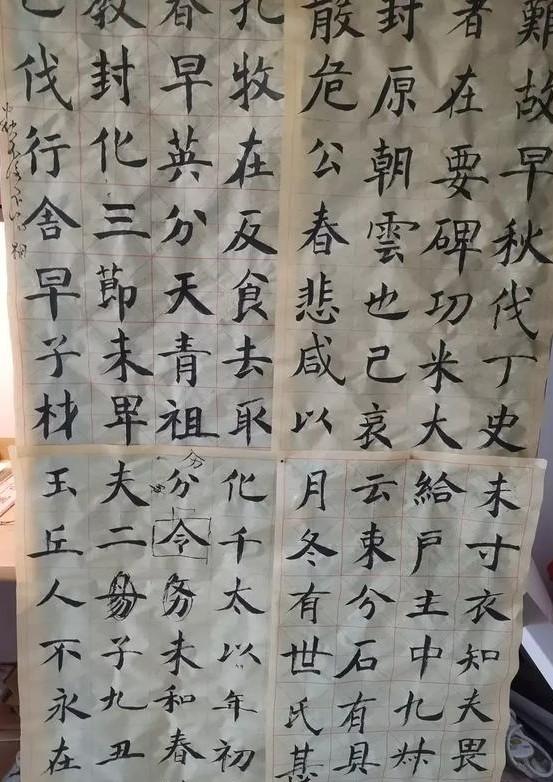 難故早秋伐丁史
者在要碑功米大
封原朝雲也己哀
散危公春悲咸以
孔牧在反食去取
春早英分天青祖
教封化三節未卑
伐行舍早子材
未寸衣知夫畏
給戶主中九
云東兮石有具
月冬有世氏甚
化千太以年初
分令務未和春
夫二子九丑
玉丘人不永在